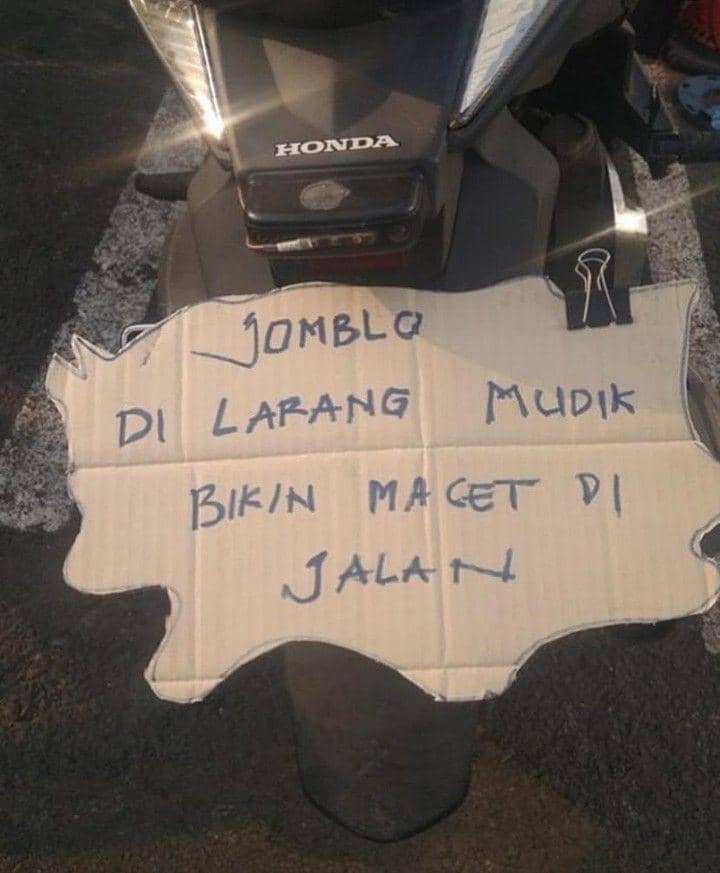 HONDA
JOMBLO
DI LARANG MUDIK
BIKIN MACET DI
JALAN